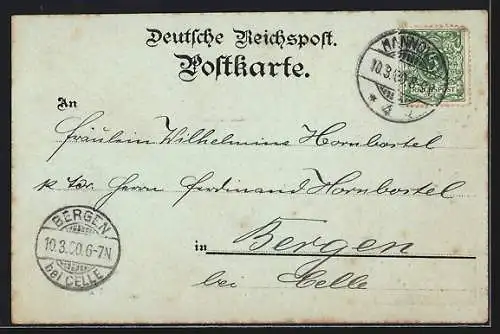 Deutsche Reichspost.
Postkarte.
An
Fräulein Wilhelmine Hornbostel
Herrn Ferdinand Hornbostel
in Bergen
bei Celle
BERGEN
10.3.00.6-7N
bei CELLE
10.3.00